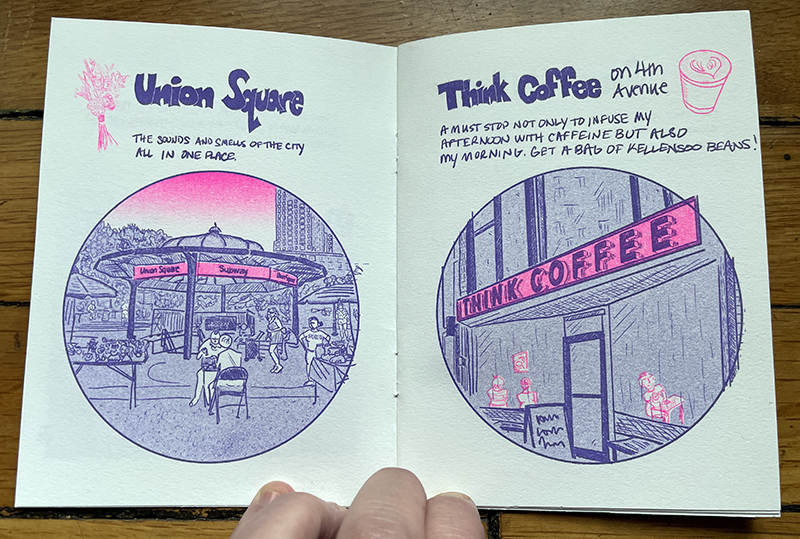 Union Square
THE SOUNDS AND SMELLS OF THE CITY
ALL IN ONE PLACE.
Union Square
Subway
Think Coffee
on 4th
Avenue
A MUST STOP NOT ONLY TO INFUSE MY
AFTERNOON WITH CAFFEINE BUT ALSO
MY MORNING. GET A BAG OF KELLENSOO BEANS!
THINK COFFEE